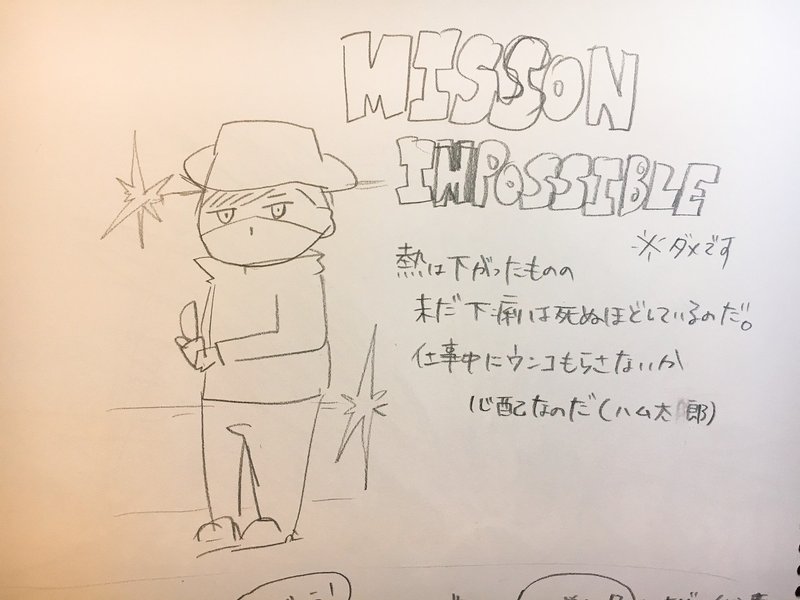 MISSON
IMPOSSIBLE
※ダメです
熱は下がったものの
未だ下痢は死ぬほどしているのだ。
仕事中にウンコもらさないか
心配なのだ(ハム太郎)